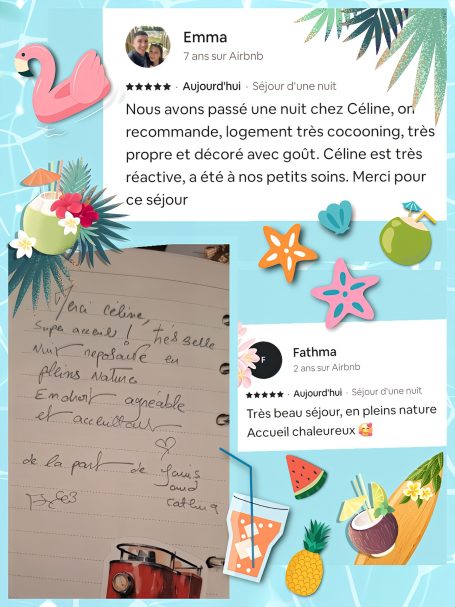 Emma
7 ans sur Airbnb
★★★★★ · Aujourd'hui · Séjour d'une nuit
Nous avons passé une nuit chez Céline, on
recommande, logement très cocooning, très
propre et décoré avec goût. Céline est très
réactive, a été à nos petits soins. Merci pour
ce séjour
Merci céline,
Super accueil ! très belle
Nuit reposante en
pleins Nature
Endroit agréable
et accueillant
de la part de
F
Fathma
2 ans sur Airbnb
★★★★★ · Aujourd'hui · Séjour d'une nuit
Très beau séjour, en pleins nature
Accueil chaleureux 🥰